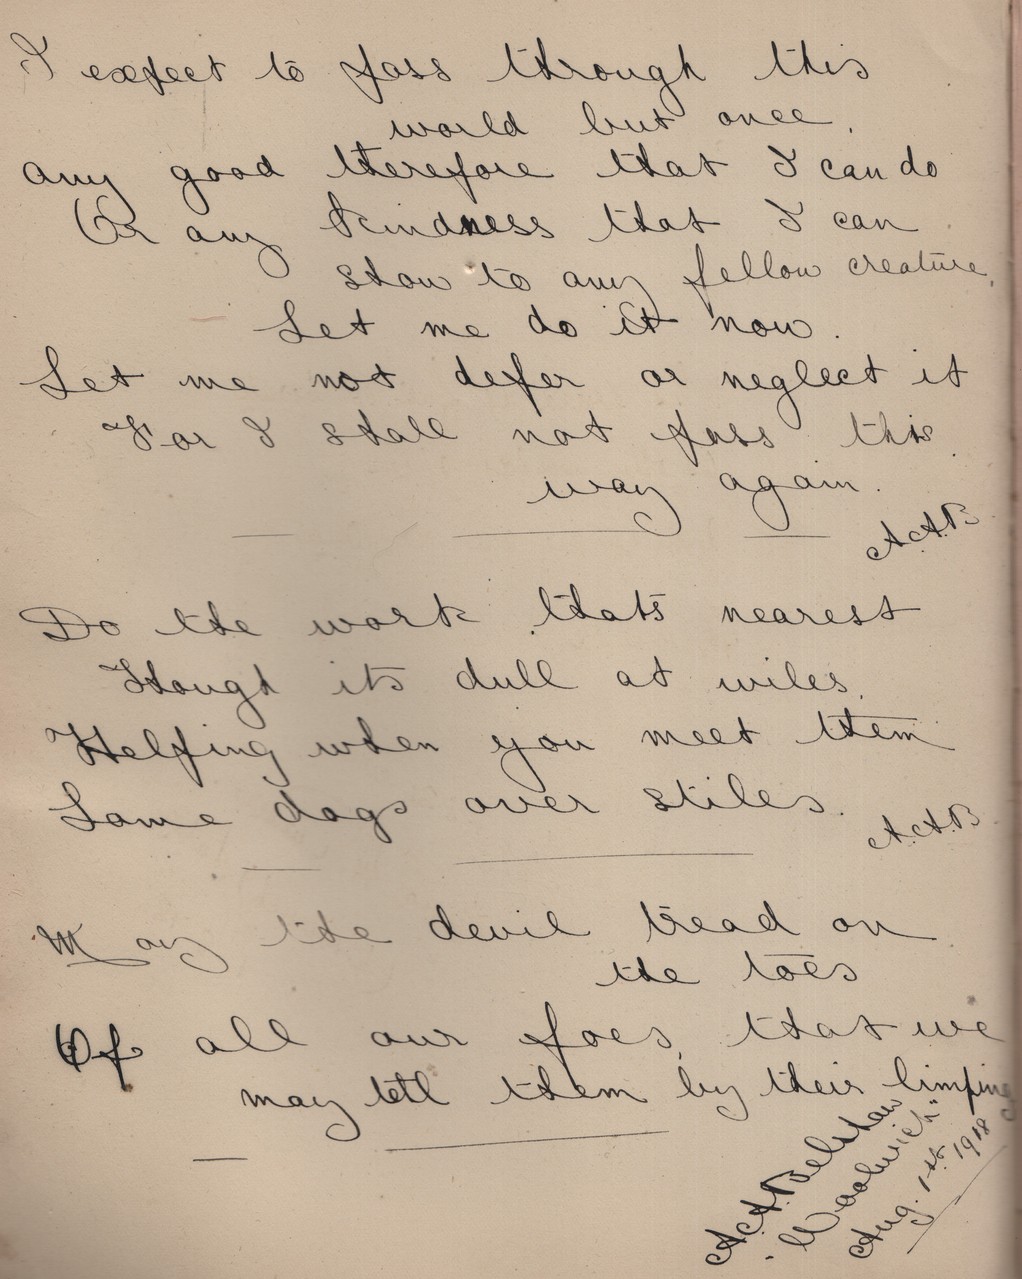 I expect to pass through this
world but once.
Any good therefore that I can do
Or any kindness that I can
show to any fellow creature,
Let me do it now.
Let me not defer or neglect it
For I shall not pass this
way again.
A.A.B
Do the work thats nearest
Though its dull at wiles,
Helping when you meet them
Lame dogs over stiles.
A.A.B
May the devil tread on
the toes
Of all our foes, that we
may tell them by their limping
A.A. Belshaw
"Woolwich"
Aug. 1st 1918